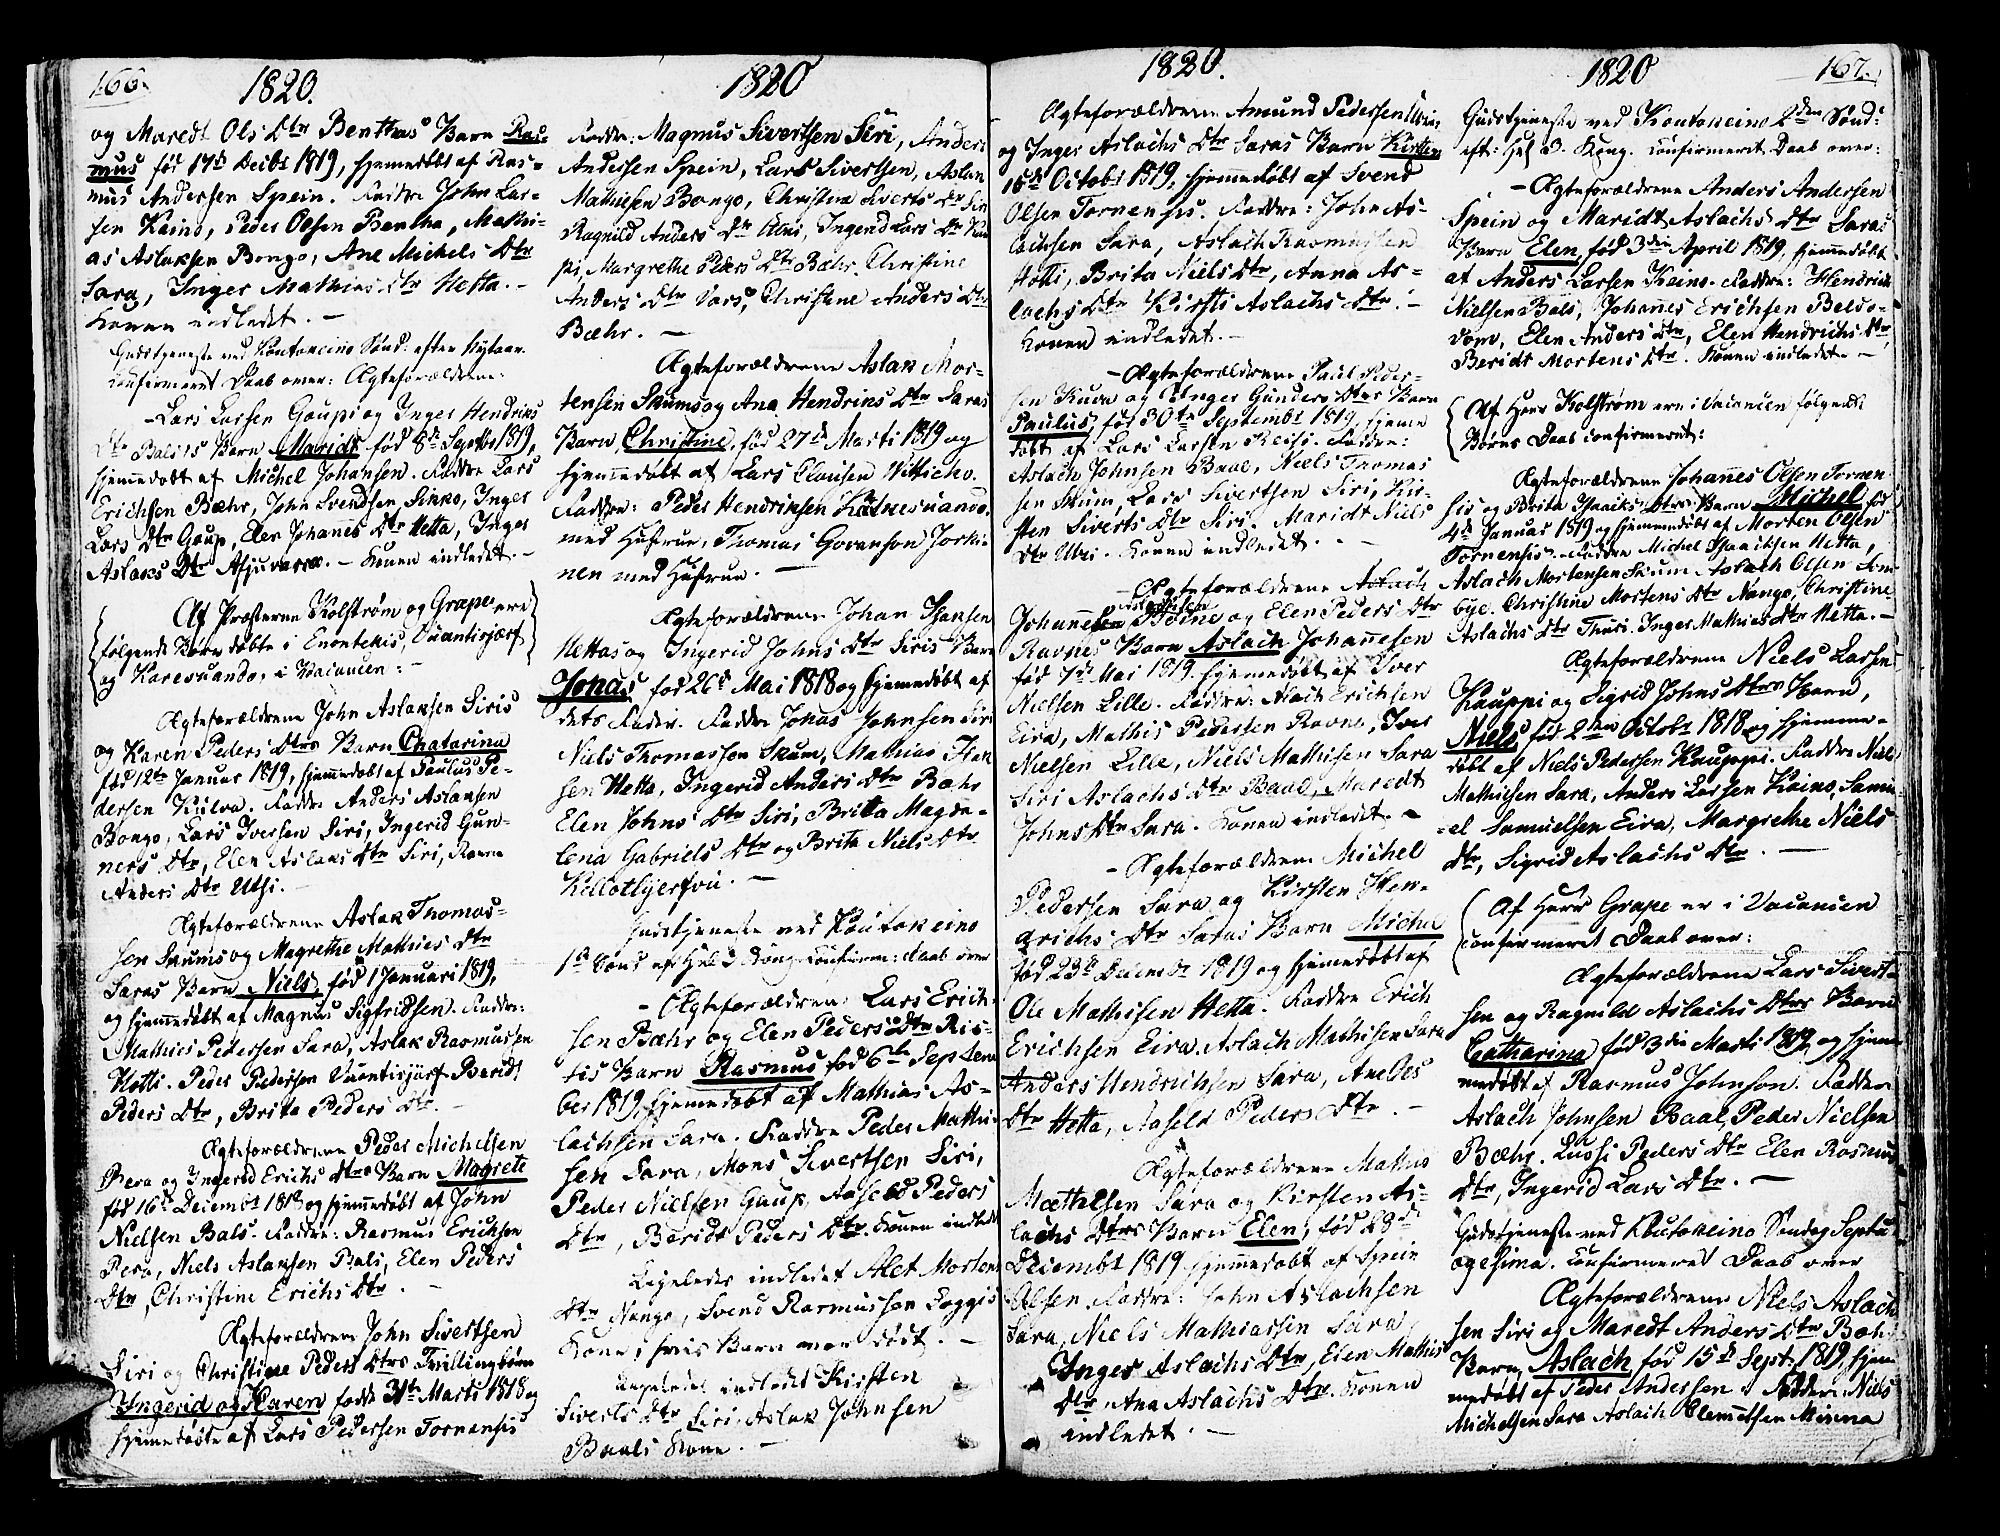 166.
1820.
og Maredt Ols Dtr Benthas Barn Ras-
mus fød 17de Decbr 1819, hjemmedøbt af Ras-
mus Andersen Spein. Faddre John Lar-
sen Kaino, Peder Olsen Bentha, Mathi-
as Aslaksen Bongo, Ane Michels Dtr
Sara, Inger Mathias Dtr Hetta. -
Konen indledet. -
Gudstjeneste ved Koutoceino Sønd. efter Nytaar.
Confirmeret Daab over: Ægteforældrene:
- Lars Larsen Gaupi og Inger Hendriks
Dtr Balsis Barn Maridt fød 8de Septbr 1819,
hjemmedøbt af Michel Johansen. Faddre Lars
Erichsen Bæhr, John Svendsen Sikko, Inger
Lars Dtr Gaup, Elen Johannes Dtr Hetta, Inger
Aslaks Dtr Afjuvarra. - Konen indledet. -
Af Præsterne Kolstrøm og Grape ere
følgende Børn døbte i Enontekis, Cuantisjærf
og Karesuando, i Vacancien: -
Ægteforældrene John Aslaksen Siris
og Karen Peders Dtrs Barn Chatarina
fød 12te Januar 1819, hjemmedøbt af Paulus Pe-
dersen Kulva. Faddre Anders Aslaksen
Bongo, Lars Iversen Siri, Ingerid Gun-
ners Dtr, Elen Aslaks Dtr Siri, Karen
Anders Dtr Utsi. -
Ægteforældrene Aslak Thomas-
sen Skums og Magrethe Mathies Dtr
Saras Barn Niels, fød 1 Januari 1819,
og hjemmedøbt af Magnus Sigfridsen. Faddre:
Mathies Pedersen Sara, Aslak Rasmussen
Hotti. Peder Pedersen Vuontisjärf. Beridt
Peders Dtr, Brita Peders Dtr. -
Ægteforældrene Peder Michelsen
Pera og Ingerid Erichs Dtrs Barn Magrete
fød 16de Decembr 1818 og hjemmedøbt af John
Nielsen Bals. Faddre: Rasmus Ericksen
Pera, Niels Aslaksen Bals, Elen Peders
Dtr, Christine Erichs Dtr. -
Ægteforældrene John Sivertsen
Siri og Christine Peders Dtrs Tvillingbørn
Ingerid og Karen fødde 31te Marti 1818 og
hjemmedøbte af Lars Pedersen Tornensis
1820
Faddre: Magnus Sivertsen Siri, Anders
Andersen Spein, Lars Sivertsen, Aslak
Mathiesen Bongo, Christina Siverts Dtr Siri
Ragnild Anders Dtr Omi, Ingerid Lars Dtr Kau
pi, Margrethe Peders Dtr Bæhr. Christine
Anders Dtr Vars, Christine Anders Dtr
Bæhr. -
Ægteforældrene Aslak Mor-
tensen Skums og Ana Hendriks Dtr Saras
Barn, Christine, fød 27de Marti 1819 og
hjemmedøbt af Lars Clausen Witticho.
Faddre: Peder Hendriksen Kætnesuando
med Hustrue, Thomas Goranson Joski-
nen med Hustrue. -
Ægteforældrene Johan Isaksen
Hettas og Ingerid Johns Dtr Siris Barn
Jonas fød 26de Mai 1818 og hjemmedøbt af
dets Fader. Faddre Jonas Johnsen Siri
Niels Thomasson Skum, Mathias Isak
sen Hetta, Ingerid Anders Dtr Bæhr
Elen Johns Dtr Siri, Britta Magda-
lena Gabriels Dtr og Brita Niels Dtr
Kellotbjerfvii. -
Gudstjeneste ved Koutokeino
1ste Sønd. eft. Hel. 3 Kong. Confirm: Daab over
- Ægteforældrene Lars Erich-
sen Bæhr og Elen Peders Dtr Ris-
tis Barn Rasmus fød 6te Septem
ber 1819, hjemmedøbt af Mathias As-
lachsen Sara. Faddre Peder Mathi-
sen Sara, Mons Sivertsen Siri,
Peder Nielsen Gaup, Aaseld Peders
Dtr, Beridt Peders Dtr. Konen indledt
Ligeledes indledet Alet Mortens
Dtr Nango, Svend Rasmussen Loggis
Kone, hvis Barn var dødt. -
Ligeledes indledet Kirsten
Siverts Dtr Siri, Aslak Johnsen
Baals Kone. -
1820.
Ægteforældrene Amund Pedersen
og Inger Aslachs Dtr Saras Barn Kirsten
15de Octobr 1819, hjemmedøbt af Svend
Olsen Tornensis. Faddre: John As-
lachsen Sara, Aslach Rasmussen
Hotti, Brita Niels Dtr, Anna As-
lachs Dtr Kirsti Aslachs Dtr. -
Konen indledet. -
- Ægteforældrene Paul Peder-
sen Kuva og Inger Gunders Dtrs Barn
Paulus, fød 30te Septembr 1819, hjemme
døbt af Lars Larsen Keisi. Faddre:
Aslach Johnsen Baal, Niels Thomas
sen Skum, Lars Sivertsen Siri, Kir-
sten Siverts Dtr Siri. Maridt Niels
Dtr Utsi. Konen indledet. -
- Ægteforældrene Aslach
Johannesen Boine og Elen Peders Dtr
Ravnes Barn Aslach Johannesen
fød 7de Mai 1819. hjemmedøbt af Iver
Nielsen Lille. Faddre: Aslach Erichsen
Eira, Mathis Pedersen Ravne, Iver
Nielsen Lille, Niels Mathisen Sara
Siri Aslachs Dtr Baal, Maredt
Johns Dtr Sara. Konen indledet. -
- Ægteforældrene Michel
Pedersen Sara og Kirsten Hen-
drichs Dtr Saras Barn Michel
fød 23de Decembr 1819 og hjemmedøbt af
Ole Mathisen Hetta. Faddre Erich
Erichsen Eira. Aslach Mathisen Sara
Anders Hendrichsen Sara, Ane Oles
Dtr Hetta, Aaseld Peders Dtr. -
Ægteforældrene Mathis
Mathisen Sara og Kirsten As-
lachs Dtrs Barn Elen, fød 28de
Decembr 1819 hjemmedøbt af Spein
Olsen. Faddre: John Aslachsen
Sara, Niels Mathiassen Sara,
Inger Aslachs Dtr, Elen Mathis
Dtr, Ana Aslachs Dtr. Konen
indledet. -
1820
167.
Gudstjeneste ved Koutoceino 2den Sønd:
eft: Hel. 3. Kong. Confirmeret Daab over:
- Ægteforældrene Anders Andersen
Spein og Maridt Aslachs Dtr Saras
Barn Elen, fød 3die April 1819, hjemmedøbt
af Anders Larsen Keino. Faddre: Hendrich
Nielsen Bals, Johannes Erichsen Beldo-
vom, Elen Anders Dtr, Elen Hendrichs Dtr,
Beridt Mortens Dtr. Konen indledet. -
Af Herr Kolstrøm ere i Vacancien følgende
Børns Daab confirmeret:
Ægteforældrene Johannes Olsen Tornen
sis og Brita Isaaks Dtrs Barn Michel fød
4de Januar 1819 og hjemmedøbt af Morten Olsen
Tornensis. - Faddre Michel Isaaksen Hetta,
Aslach Mortensen Skum Aslach Olsen Som
bye. Christine Mortens Dtr Nango, Christine
Aslachs Dtr Thuri. Inger Mathies Dtr Hetta. -
Ægteforældrene Niels Larsen
Kauppi og Sigrid Johns Dtrs Barn,
Niels fød 2den Octobr 1818 og hjemme-
døbt af Niels Pedersen Kauppi. Faddre Niels
Mathiesen Sara, Anders Larsen Kaino, Samu
-el Samuelsen Eira, Margrethe Niels
Dtr, Sigrid Aslachs Dtr. -
Af Herr Grape er i Vacancien
confirmeret Daab over:
Ægteforældrene Lars Sivert-
sen og Ragnild Aslachs Dtrs Barn
Catharina fød 3die Marti 1819 og hjem
medøbt af Rasmus Johnson. Faddre
Aslach Johnsen Baal, Peder Nielsen
Bæhr. Lussi Peders Dtr Elen Rasmus
Dtr, Ingerid Lars Dtr. -
Gudstjeneste ved Koutokeino Søndag Septu
agesima. Confirmeret Daab over
Ægteforældrene Niels Aslach
sen Siri og Maredt Anders Dtr Bæhr
Barn, Aslach fød 15de Sept. 1819, hjem
medøbt af Peder Andersen. Faddere Niels
Michelsen Sara Aslach Clemetsen Minna